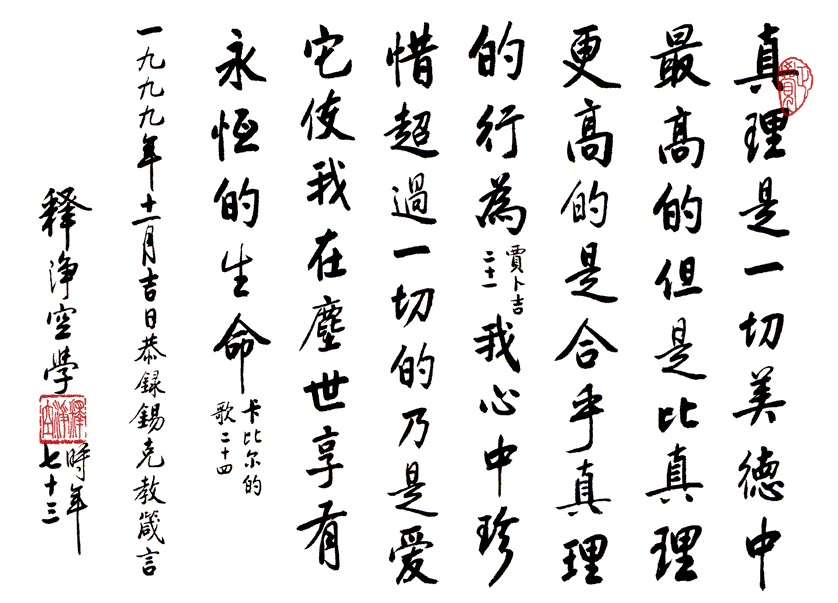 真理是一切美德中
最高的但是比真理
更高的是合乎真理
的行為
賈卜吉
二十一
我心中珍
惜超過一切的乃是愛
它使我在塵世享有
永恆的生命
卡比尔的
歌二十四
一九九九年十一月吉日恭録錫克教箴言
釋淨空學
時年
七十三
釋淨空